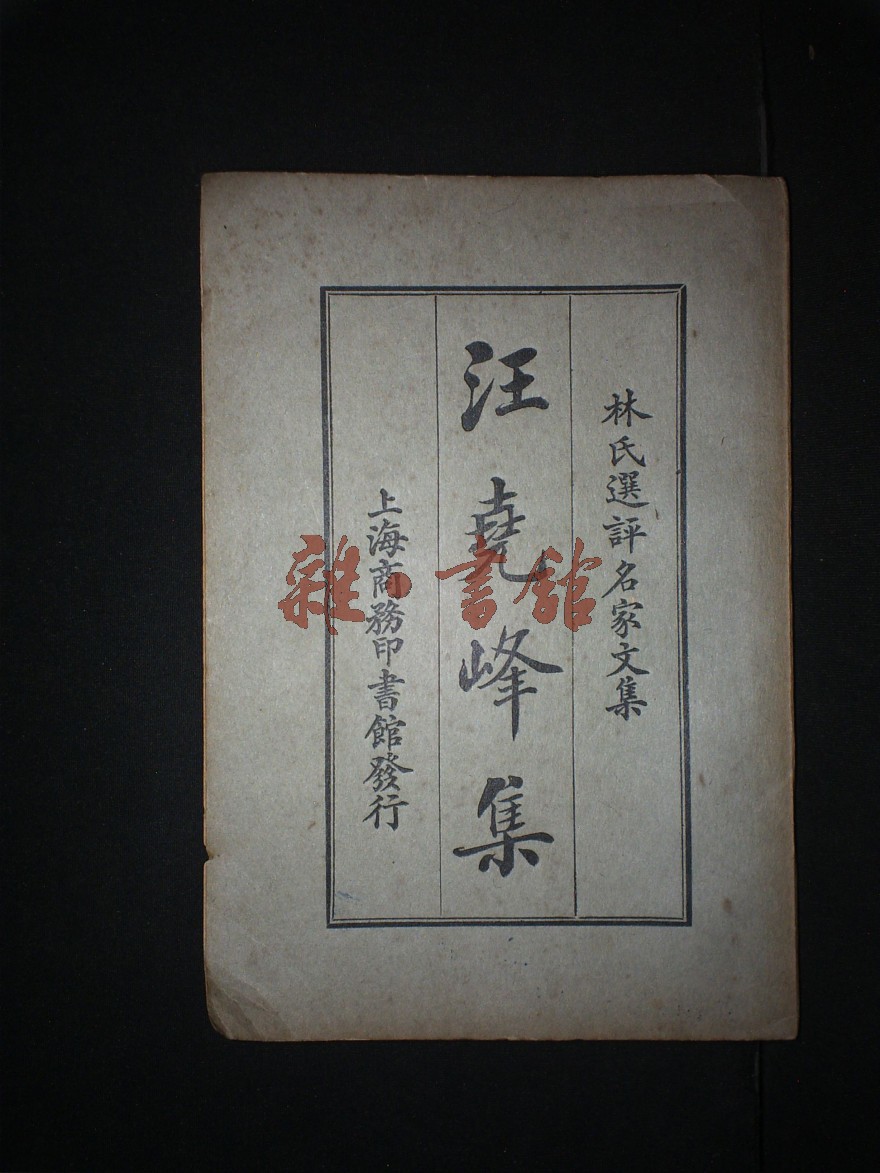 林氏選評名家文集
汪堯峰集
上海商務印書館發行
雜·書舘